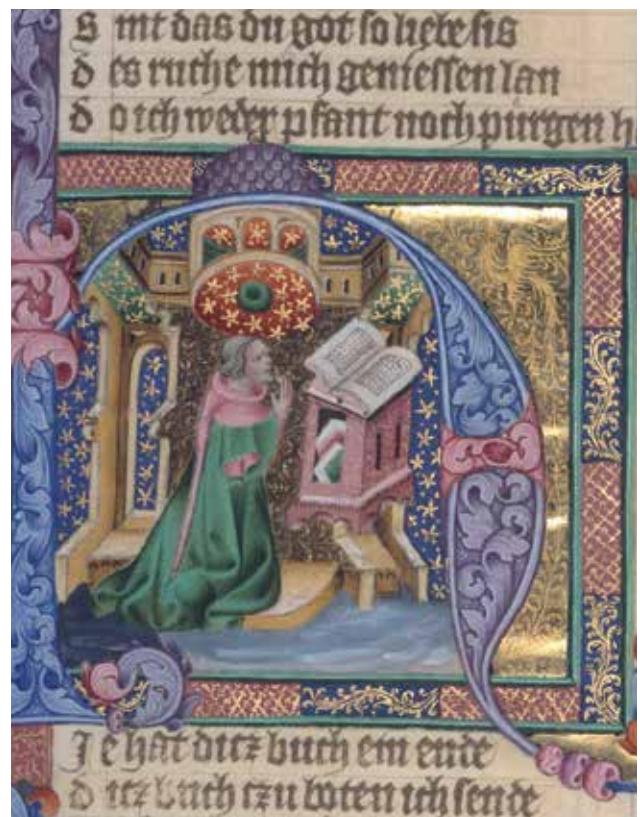 S int das du got so liebe sis
d es ruche mich geniessen lan
d o ich weder pfant noch purgen h
H
ie hat ditz buch ein ende
d itz buch czu boten ich sende